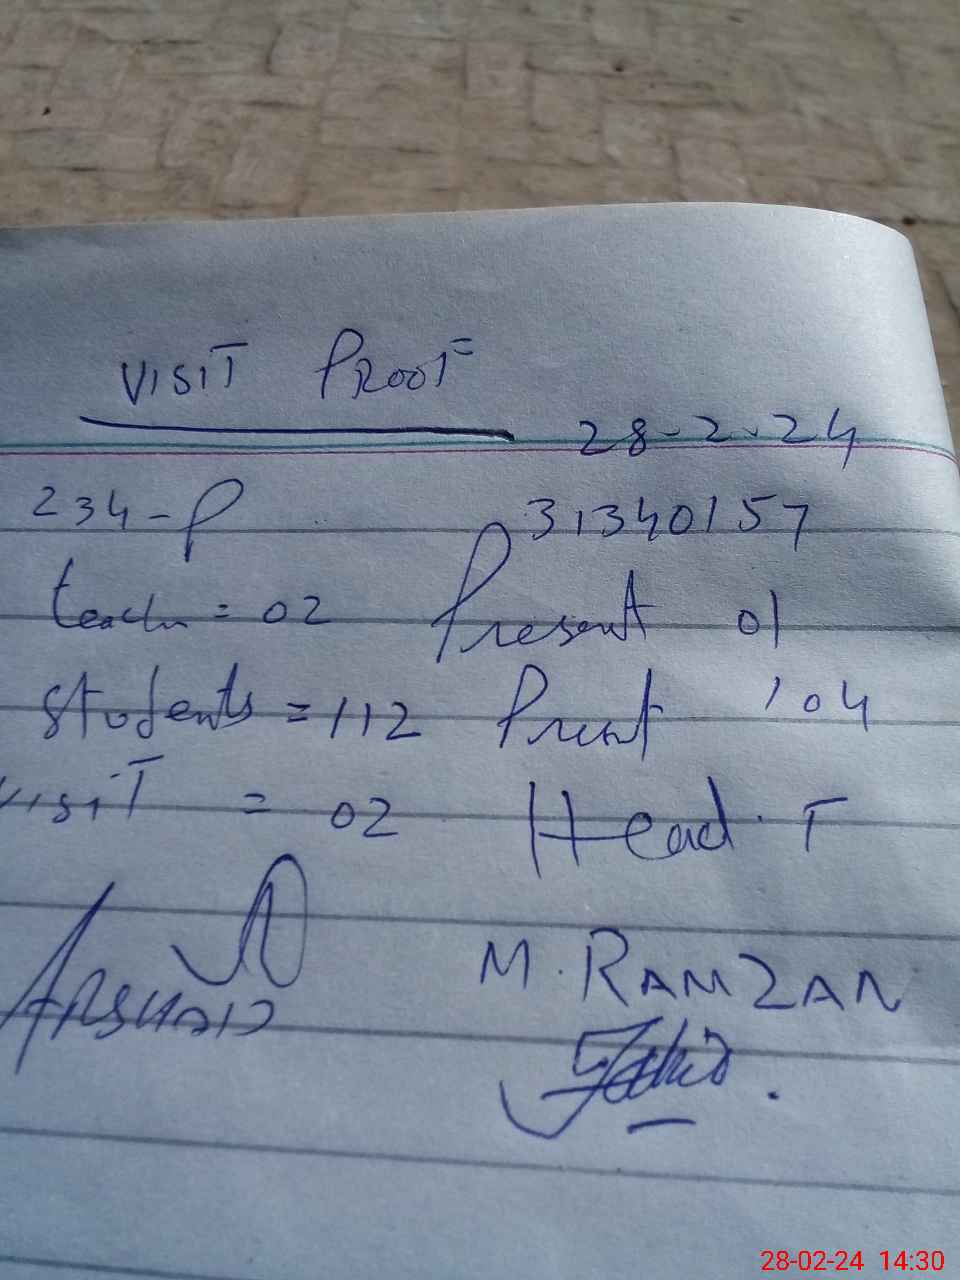 VISIT PROOF
28-2-24
234-P 31340157
teacher = 02 Present 01
Students = 112 Present 104
VISIT = 02 Head. T
ARSHAD M. RAMZAN
28-02-24 14:30